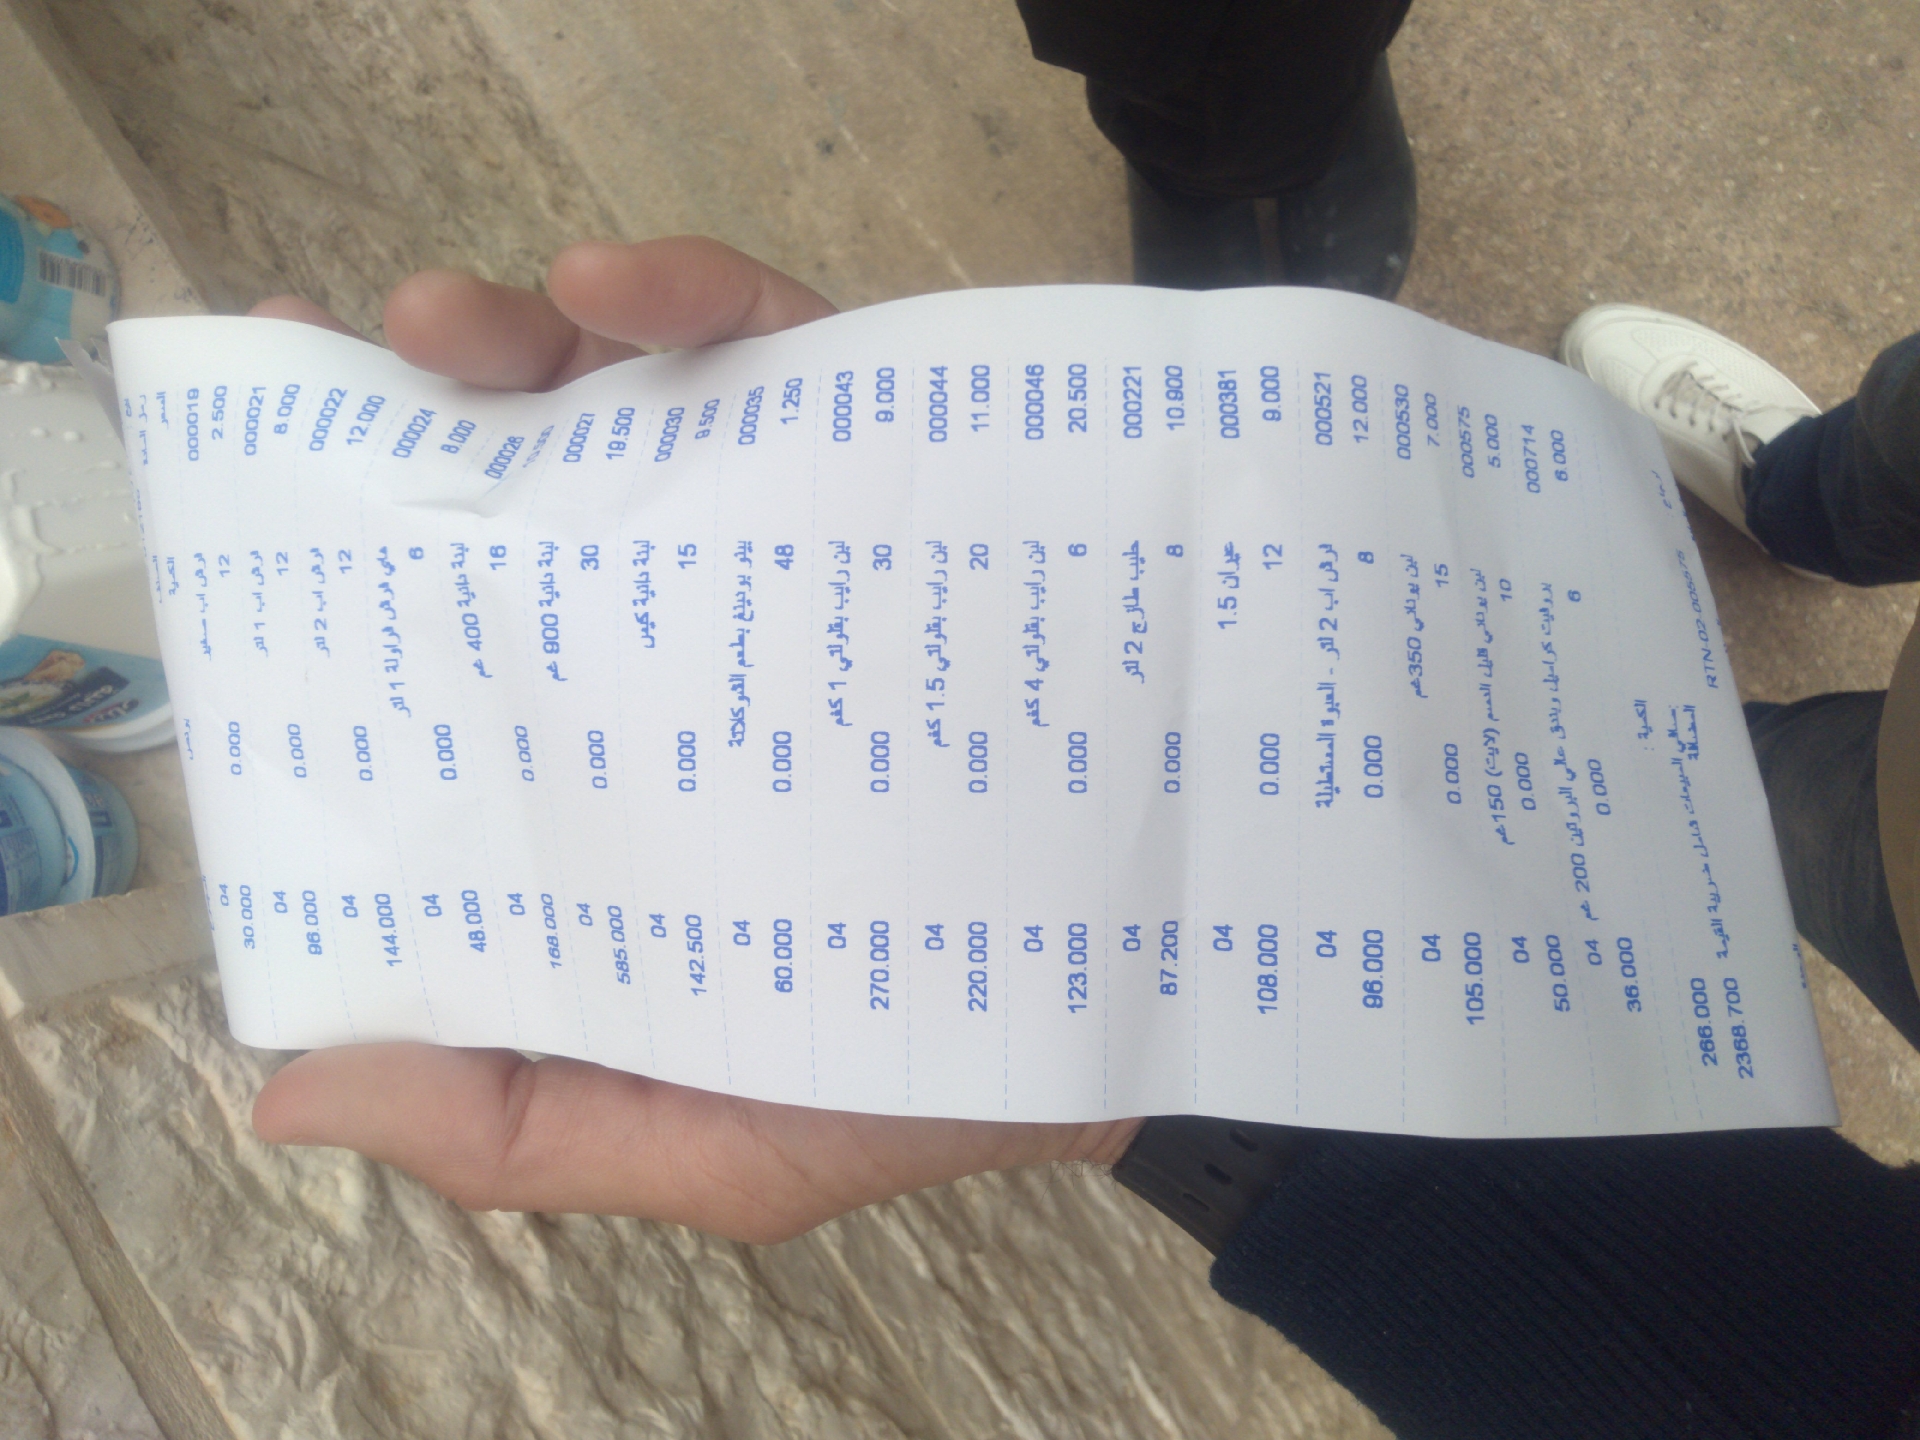 رمز الصنف
السعر الكمية
000018 فرش اب صغير 04
2.500 12 0.000 30.000
000021 فرش اب 1 لتر 04
8.000 12 0.000 96.000
000022 فرش اب 2 لتر 04
12.000 12 0.000 144.000
000024 هاي فرش فراولة 1 لتر 04
8.000 6 0.000 48.000
000026 لبنة دانية 400 غم 04
16 0.000 168.000
000027 لبنة دانية 900 غم 04
19.500 30 0.000 585.000
000030 لبنة دانية كيس 04
9.500 15 0.000 142.500
000035 بودينغ بطعم الشوكلاتة 04
1.250 48 0.000 60.000
000043 لبن رايب 1 كغم 04
9.000 30 0.000 270.000
000044 لبن رايب 1.5 كغم 04
11.000 20 0.000 220.000
000046 لبن رايب 4 كغم 04
20.500 6 0.000 123.000
000221 حليب طازج 2 لتر 04
10.900 8 0.000 87.200
000381 عيران 1.5 04
9.000 12 0.000 108.000
000521 فرش اب 2 لتر - العبوة المستطيلة 04
12.000 8 0.000 96.000
000530 لبن يوناني 350غم 04
7.000 15 0.000 105.000
000575 لبن يوناني قليل الدسم (لايت) 150غم 04
5.000 10 0.000 50.000
000714 بروفيت كراميل وبندق عالي البروتين 200 غم 04
6.000 6 0.000 36.000
الكمية :
266.000
صافي المبيعات شامل ضريبة القيمة المضافة 2368.700
RTN-02-005575